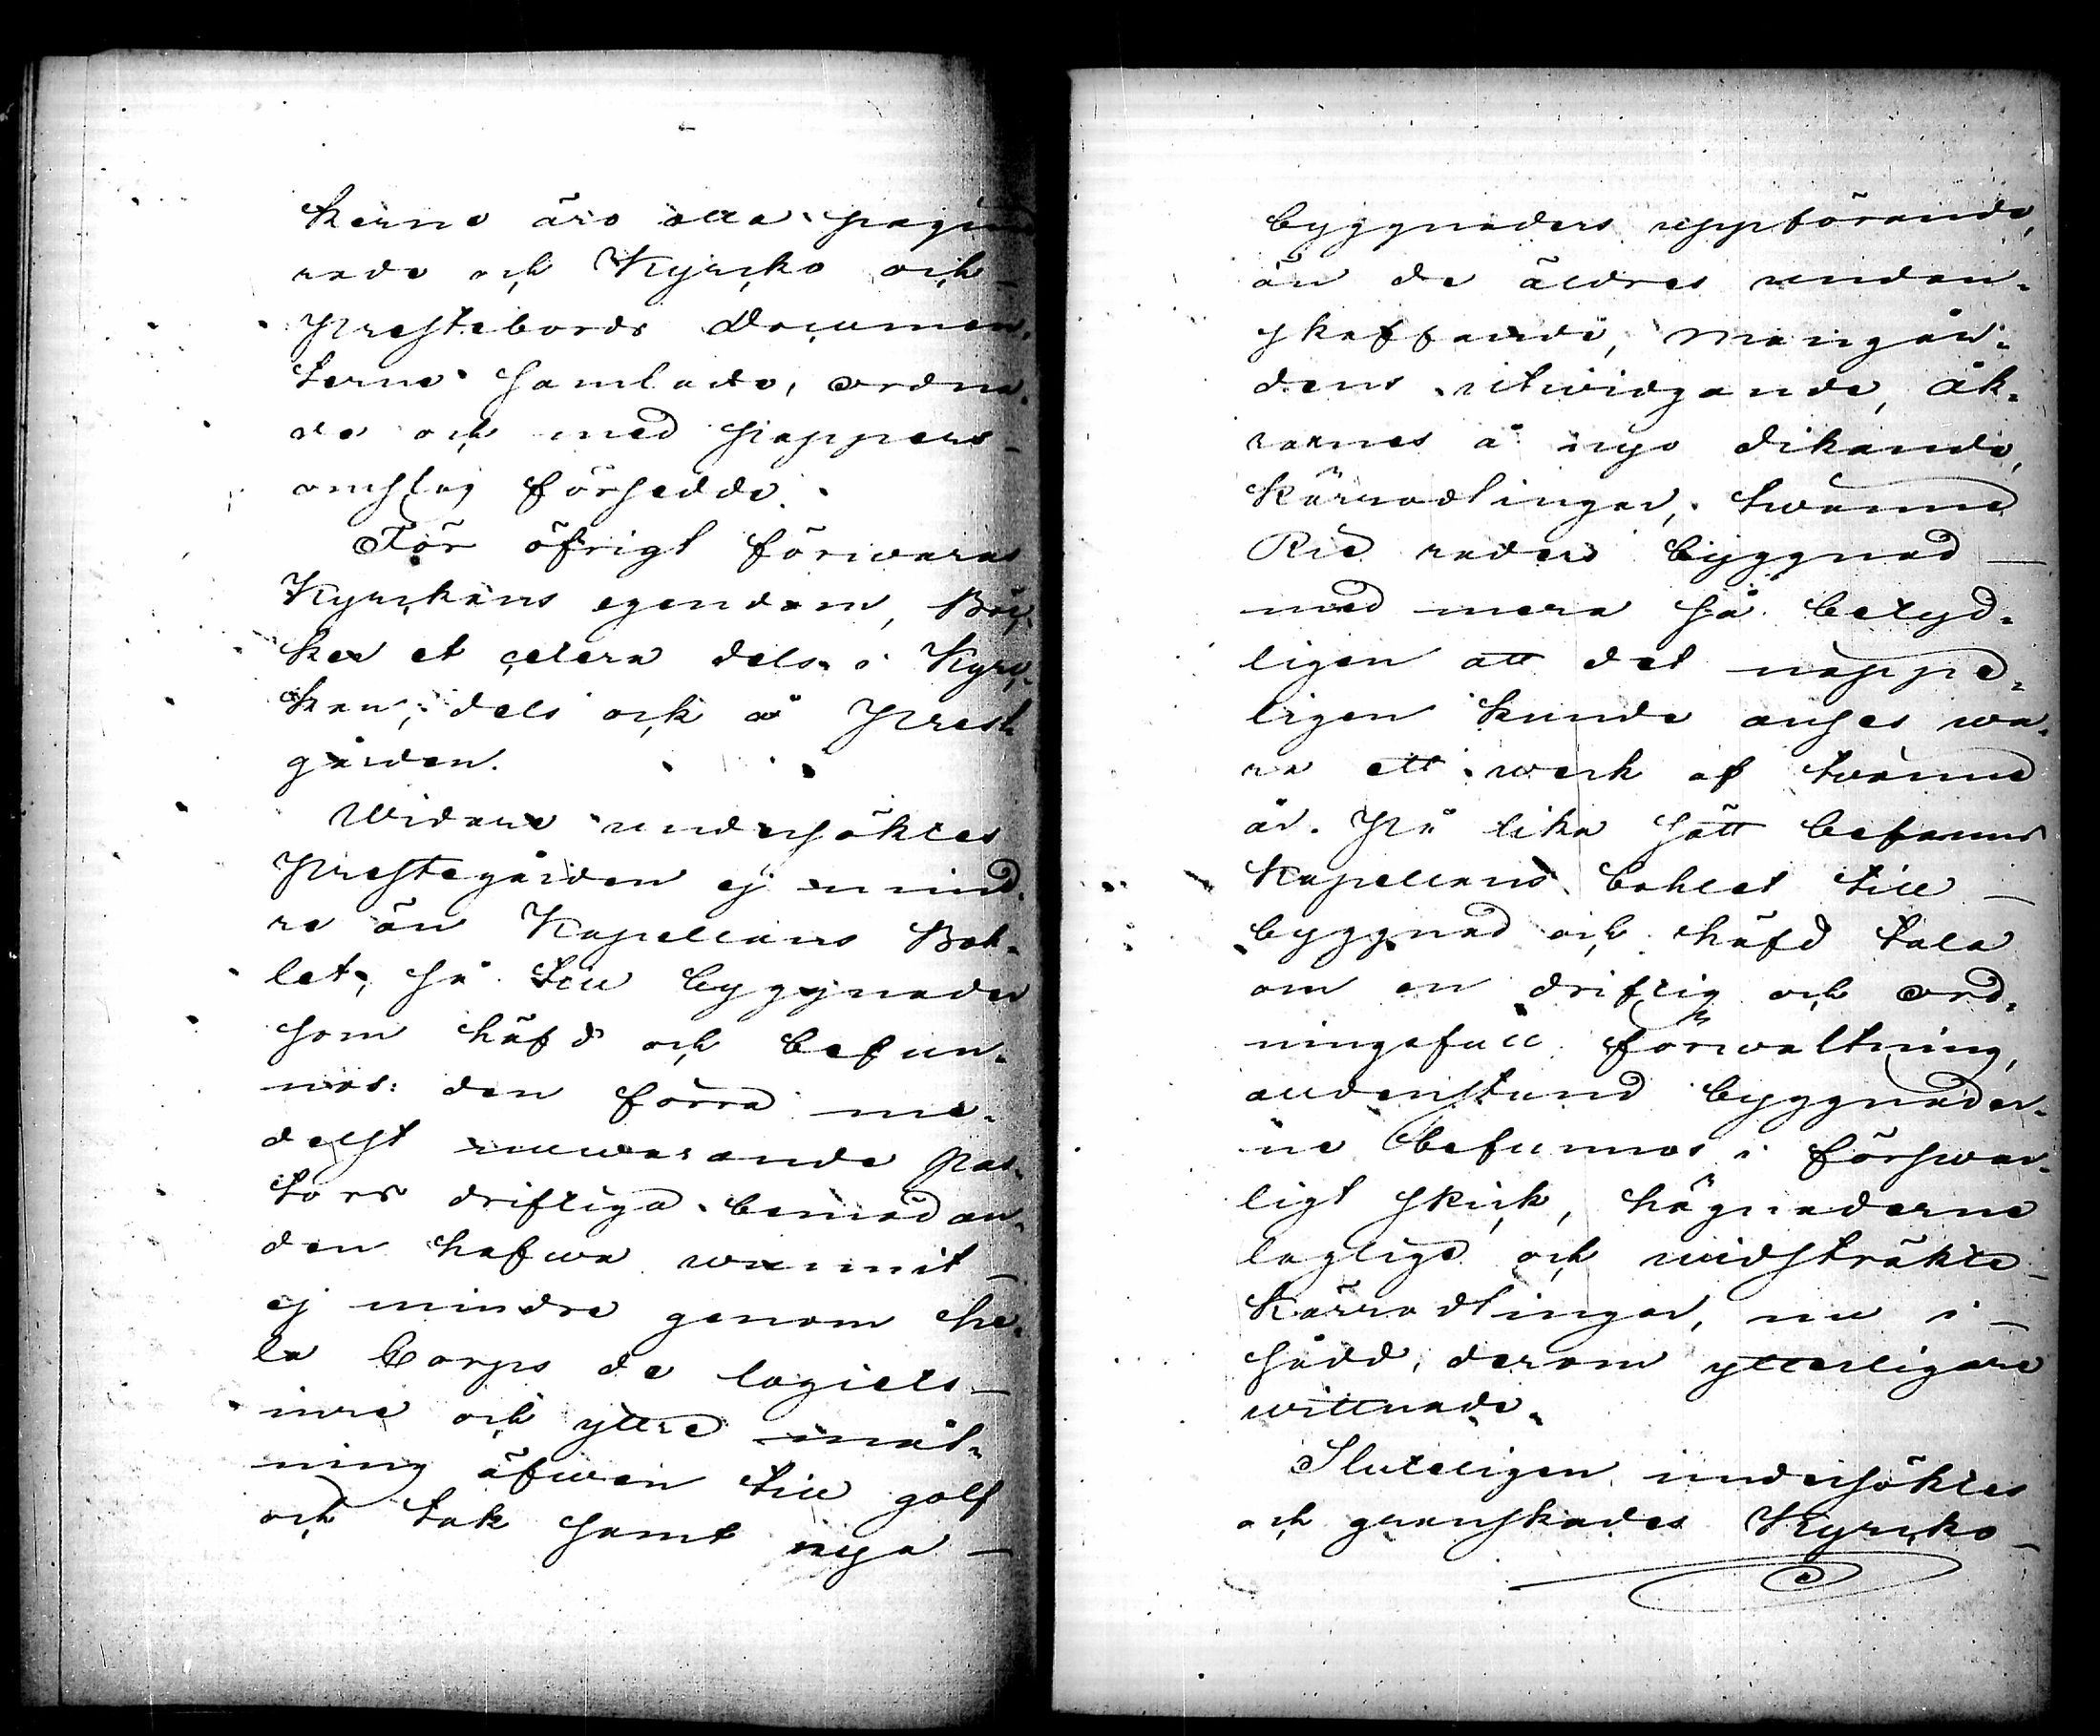 kerne äro alla pagine
rade och Kyrcko och_
Prestebords Documen,
terne samlade, ordna,
de och med pappers_
omslag försedde.
För öfrigt förwaras
Kyrckans egendom, Böc,
ker et cetera dels i Kyrc,
kan, dels ock å Prest
gården.
Widare undersöktes
Prestegården ej mind,
re än Kapellans Boh,
let, så till byggnader
som häfd och befun,
nos: den förra me,
delst nuwarande Pas,
tors driftiga bemödan,
den hafwa wunnit_
ej mindre genom he,
la Corps de logiets_
inre och yttre mål,
ning äfwen till golf
och tak samt nya_
byggnaders uppförande,
än de äldres undan,
skaffande, Mangår,
dens utwidgande, åk,
rarnes å nyo dikande,
Kärrodlingar, twänne
Rie raders byggnad_
med mera så betyd,
ligen att det näppe,
ligen kunde anses wa,
ra ett werk af twänne
år. På lika sätt befanns
Kapellans bohlet till_
byggnad och häfd tala
om en driftig och ord,
ningsfull förwaltning,
aldenstund byggnader,
ne befunnos i förswar,
ligt skick, hägnaderne
laglige och widsträkte_
Kärrodlingar, nu i_
sådd, derom ytterligare
wittnade.
Sluteligen undersöktes
och granskades Kyrcko_